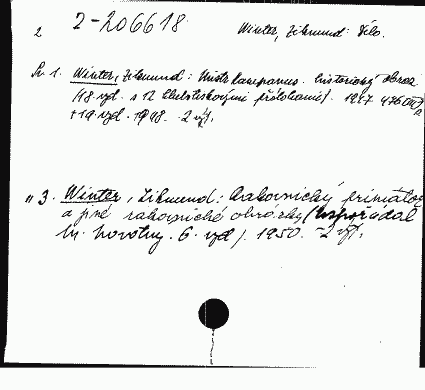 2 2-206618 Winter, Zikmund: Dílo.
Sv. 1. Winter, Zikmund: Mistr Kampanus. Historický obraz
(18. vyd. s 12 hlubotiskovými přílohami). 1947. 476
+ 19. vyd. 1948. 2 výt.
" 3. Winter, Zikmund: Rakovnický primátor
a jiné rakovnické obrázky (Uspořádal
M. Novotný. 6. vyd.). 1950. 2 výt.